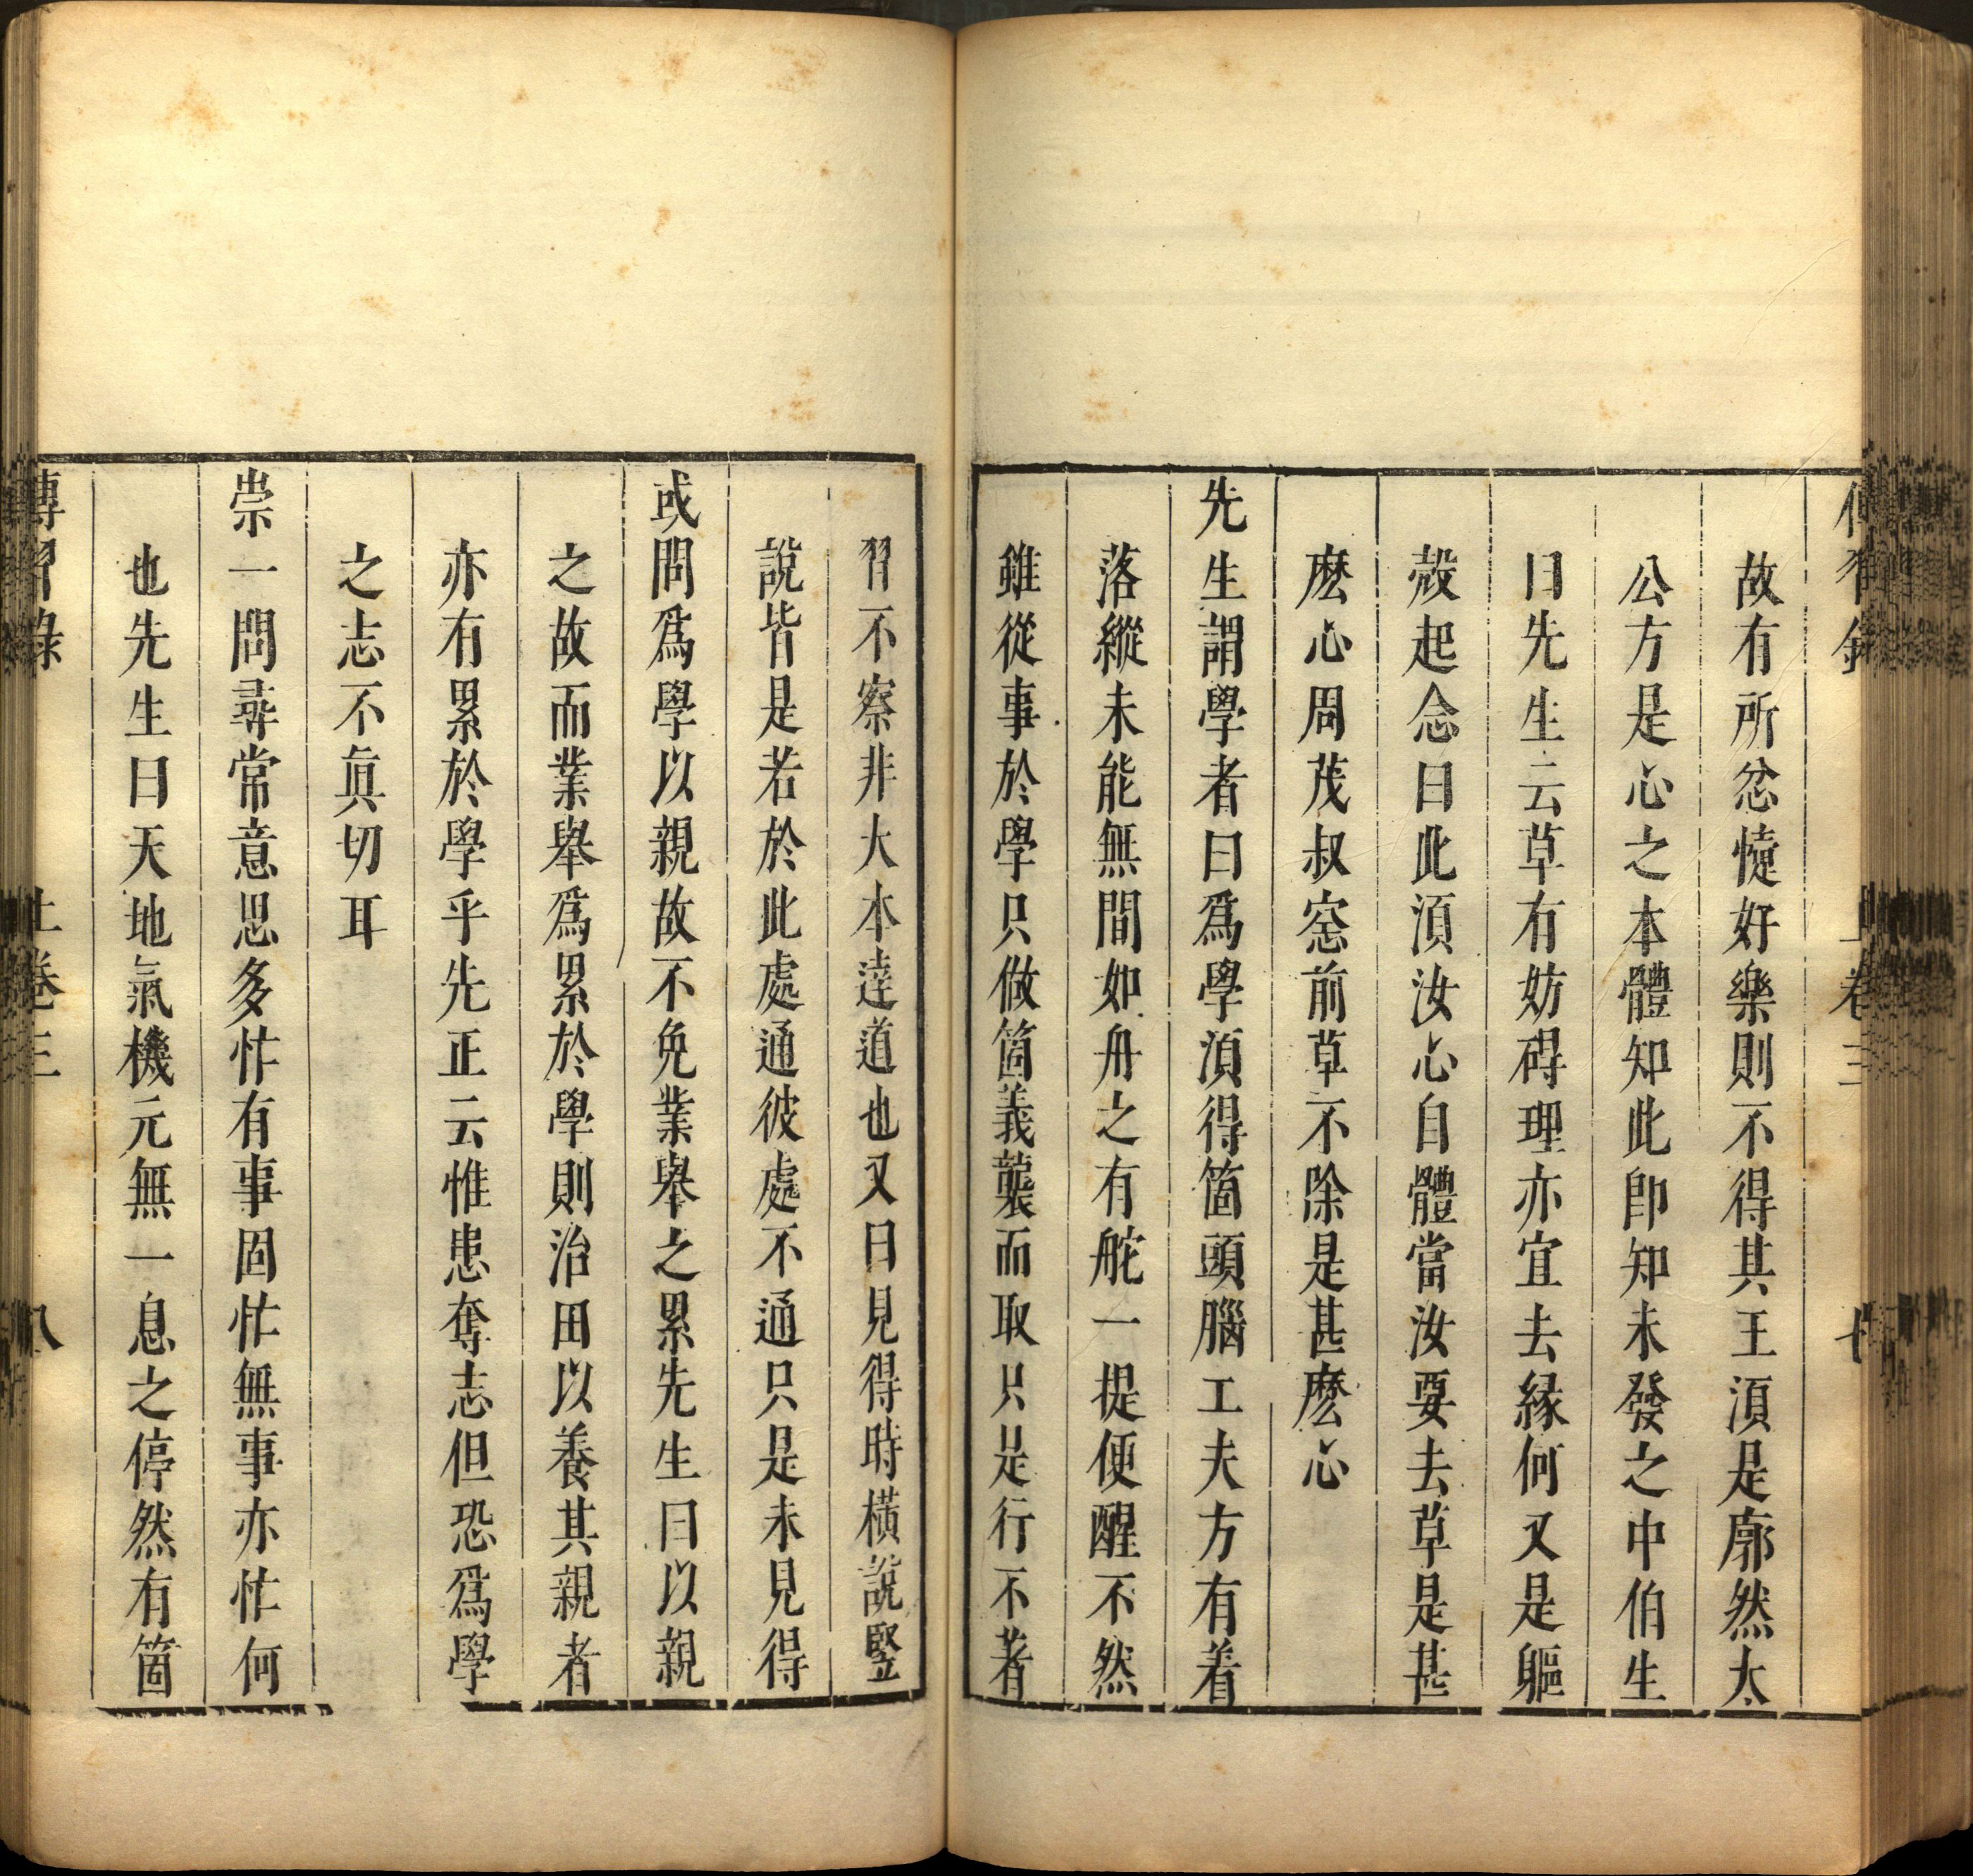 傳習錄 上卷三 七
故有所忿懥好樂則不得其正須是廓然太
公方是心之本體知此卽知未發之中伯生
曰先生云草有妨碍理亦宜去緣何又是軀
殼起念曰此須汝心自體當汝要去草是甚
麽心周茂叔窓前草不除是甚麽心
先生謂學者曰爲學須得箇頭腦工夫方有着
落縱未能無間如舟之有舵一提便醒不然
雖從事於學只做箇義襲而取只是行不著
習不察非大本達道也又曰見得時橫說豎
說皆是若於此處通彼處不通只是未見得
或問爲學以親故不免業舉之累先生曰以親
之故而業舉爲累於學則治田以養其親者
亦有累於學乎先正云惟患奪志但恐爲學
之志不眞切耳
崇一問尋常意思多忙有事固忙無事亦忙何
也先生曰天地氣機元無一息之停然有箇
傳習錄 上卷三 八